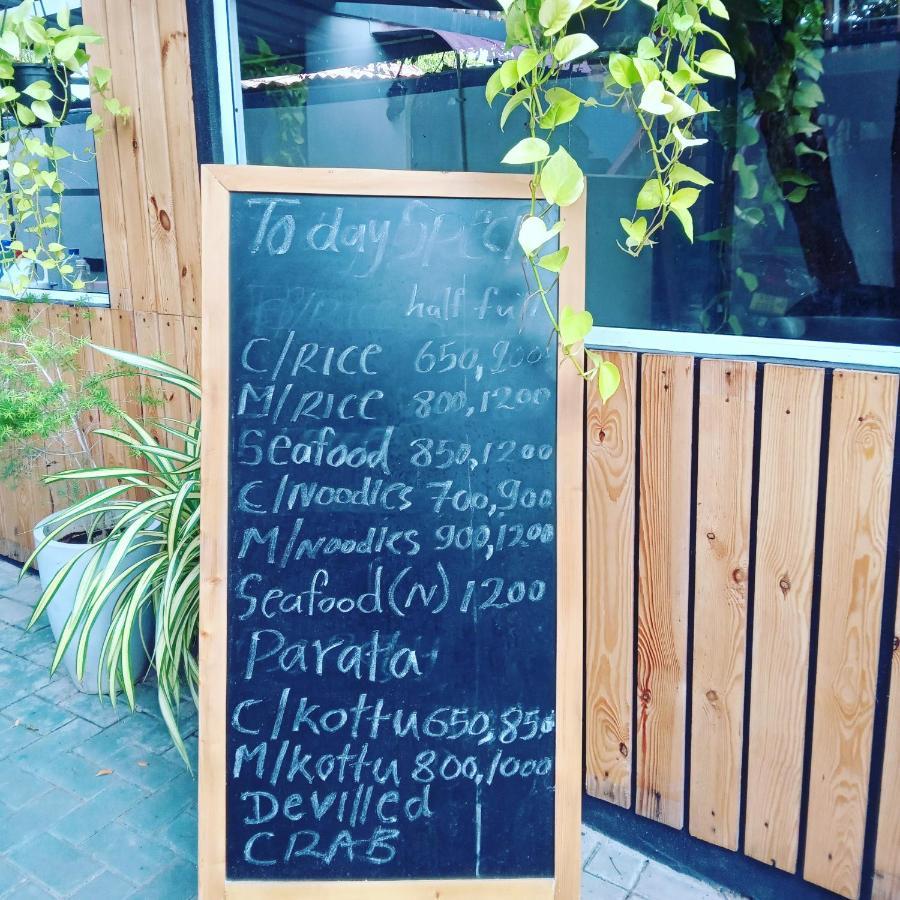 To day Speci
half full
C/RICE 650,900
M/RICE 800,1200
Seafood 850,1200
C/Noodles 700,900
M/Noodles 900,1200
Seafood (N) 1200
Parata
C/kottu 650,850
M/kottu 800,1000
Devilled
CRAB